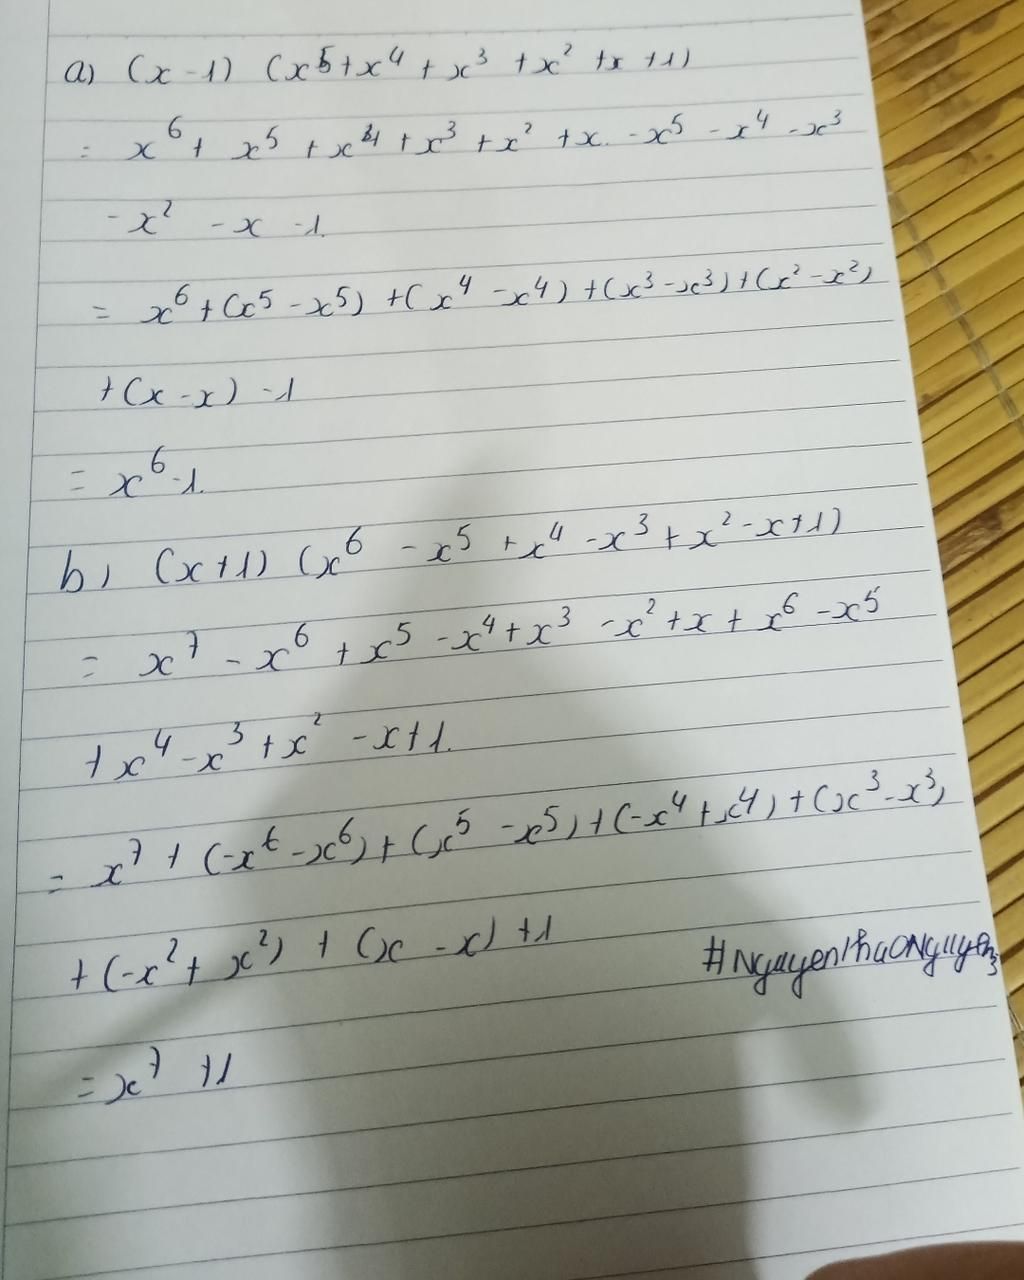 a) (x - 1) (x⁵ + x⁴ + x³ + x² + x + 1)
= x⁶ + x⁵ + x⁴ + x³ + x² + x - x⁵ - x⁴ - x³
- x² - x - 1.
= x⁶ + (x⁵ - x⁵) + (x⁴ - x⁴) + (x³ - x³) + (x² - x²)
+ (x - x) - 1
= x⁶ - 1.
b) (x + 1) (x⁶ - x⁵ + x⁴ - x³ + x² - x + 1)
= x⁷ - x⁶ + x⁵ - x⁴ + x³ - x² + x + x⁶ - x⁵
+ x⁴ - x³ + x² - x + 1.
= x⁷ + (-x⁶ - x⁶) + (x⁵ - x⁵) + (-x⁴ + x⁴) + (x³ - x³)
+ (-x² + x²) + (x - x) + 1
#NguyenThaoNguyen
= x⁷ + 1